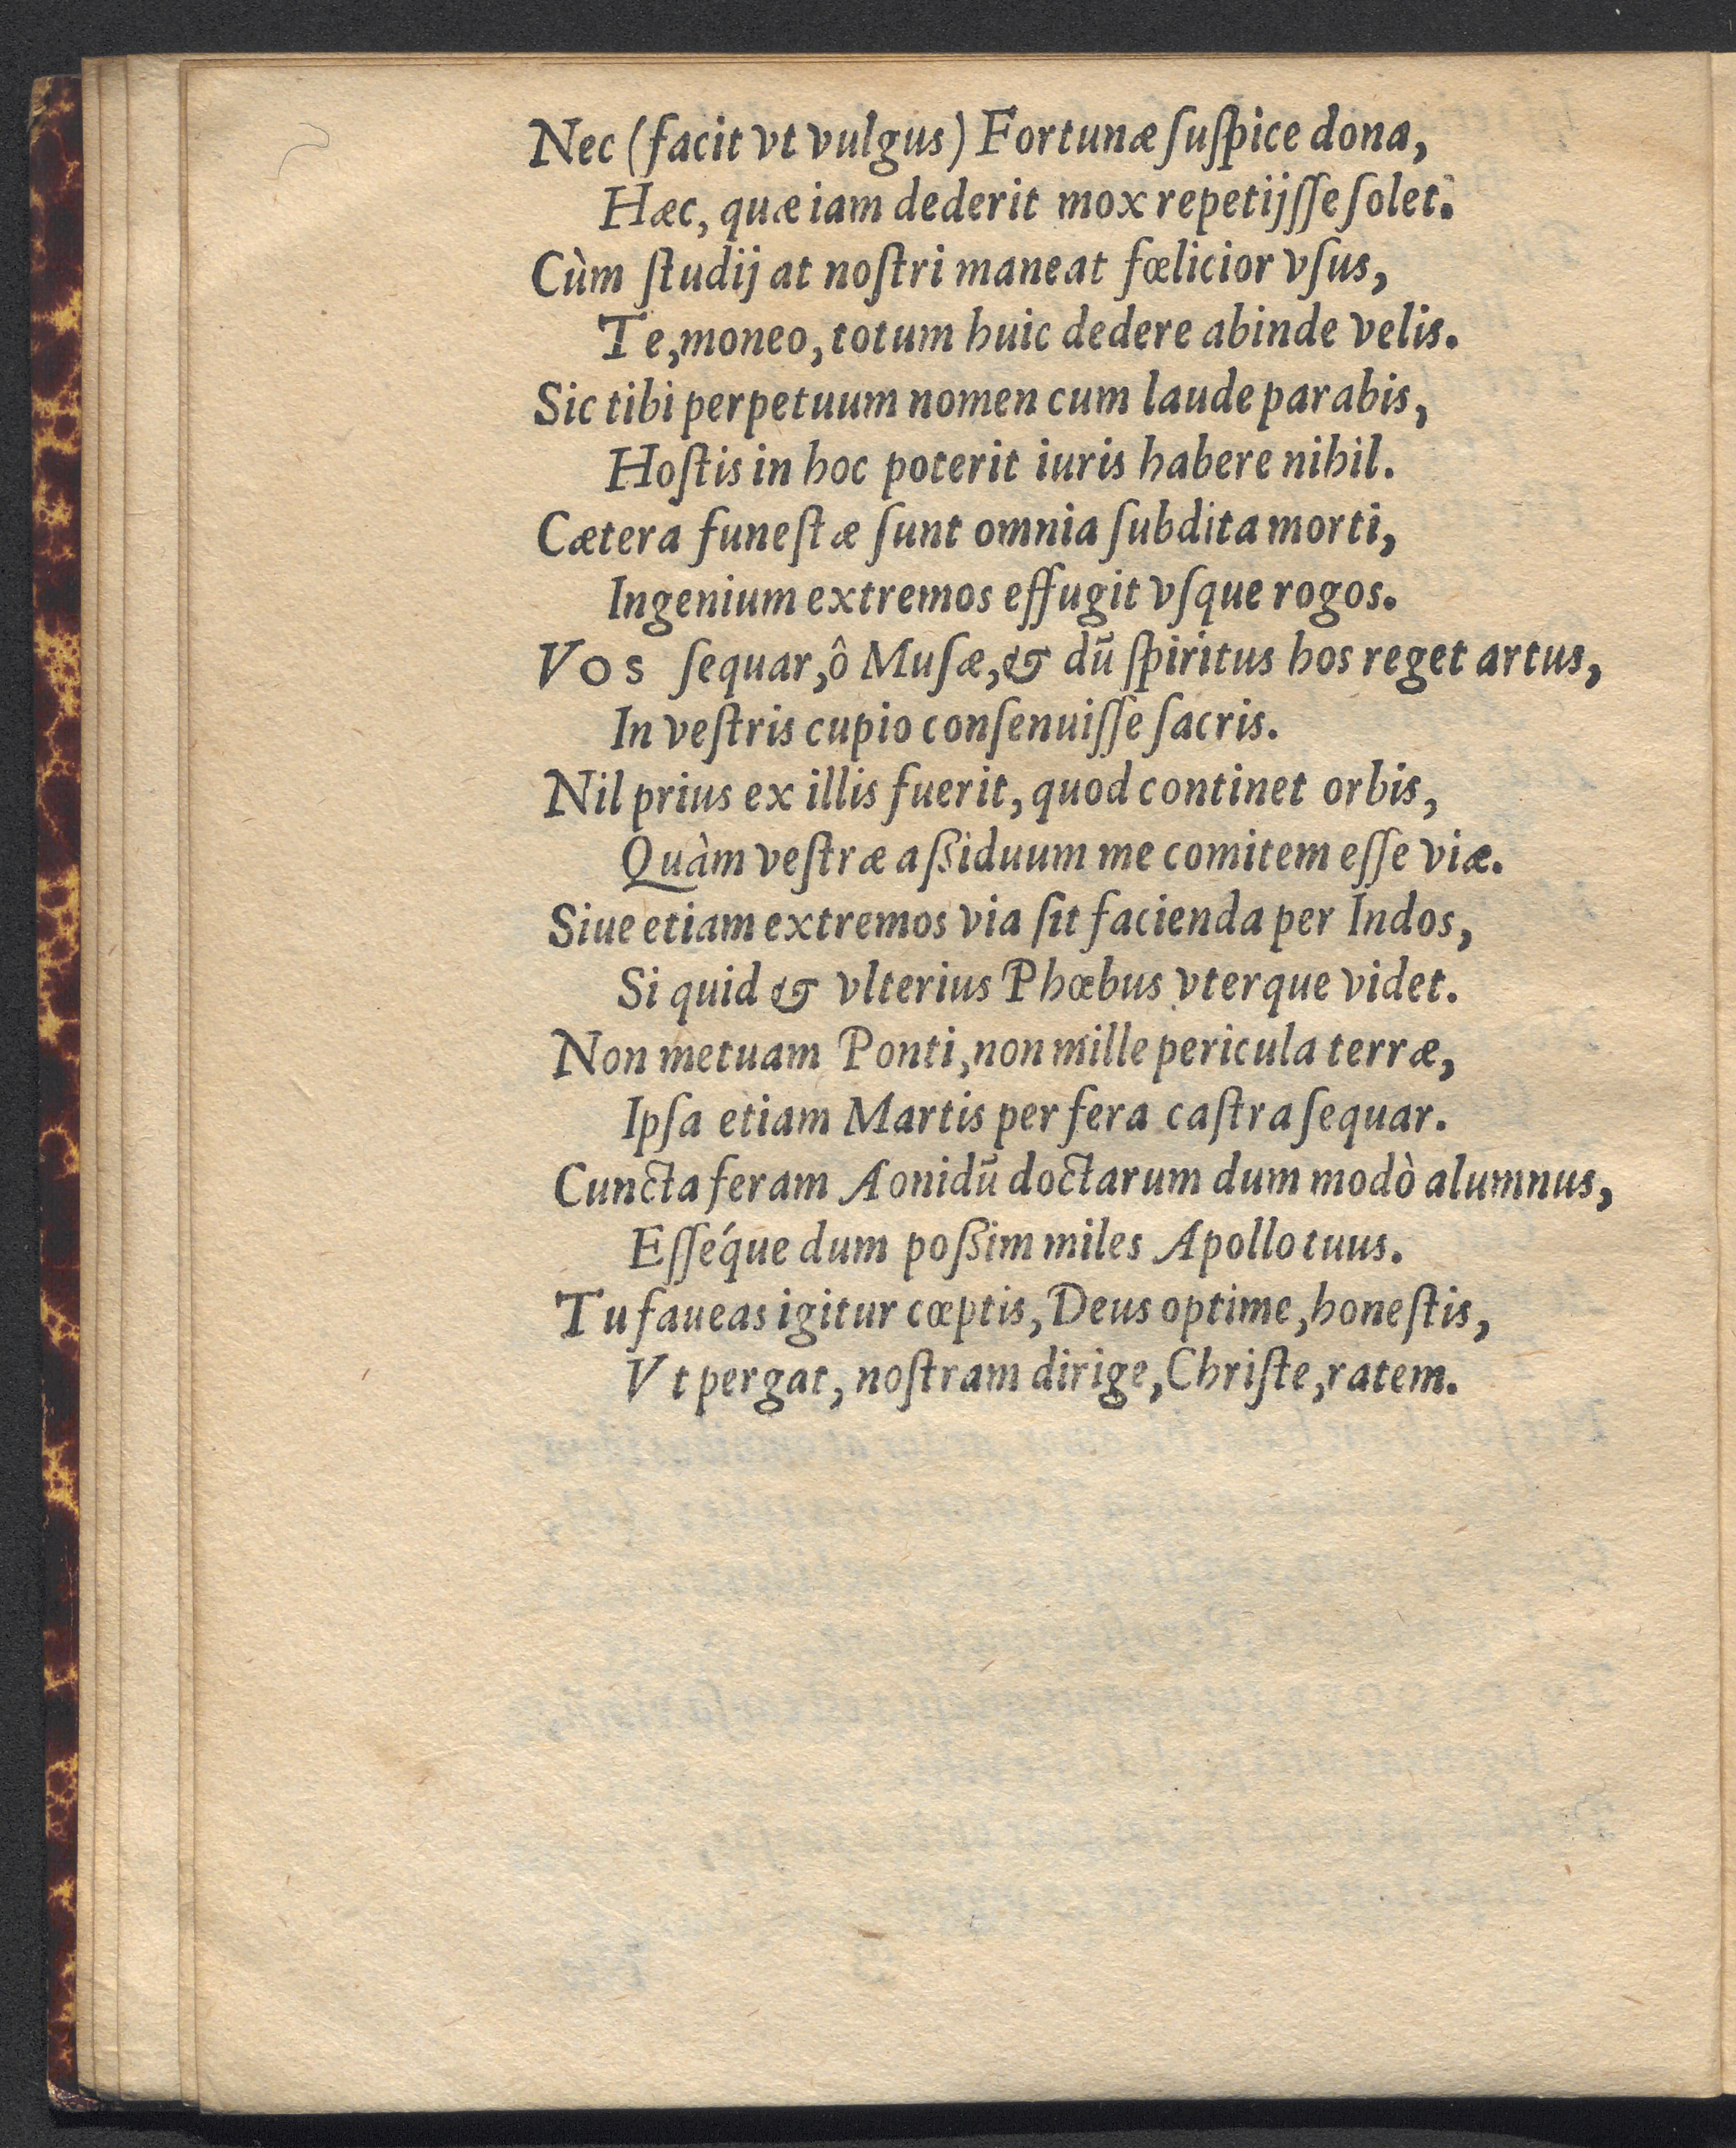 Nec (facit vt vulgus) Fortunæ ſuſpice dona,
Hæc, quæ iam dederit mox repetijſſe ſolet.
Cùm ſtudij at noſtri maneat fœlicior vſus,
Te, moneo, totum huic dedere abinde velis.
Sic tibi perpetuum nomen cum laude parabis,
Hoſtis in hoc poterit iuris habere nihil.
Cætera funeſtæ ſunt omnia ſubdita morti,
Ingenium extremos effugit vſque rogos.
Vos ſequar, ô Muſæ, & dū ſpiritus hos reget artus,
In veſtris cupio conſenuiſſe ſacris.
Nil prius ex illis fuerit, quod continet orbis,
Quàm veſtræ aßiduum me comitem eſſe viæ.
Siue etiam extremos via ſit facienda per Indos,
Si quid & vlterius Phœbus vterque videt.
Non metuam Ponti, non mille pericula terræ,
Ipſa etiam Martis per fera caſtra ſequar.
Cuncta feram Aonidū doctarum dum modò alumnus,
Eſſéque dum poßim miles Apollo tuus.
Tu faueas igitur cœptis, Deus optime, honeſtis,
Vt pergat, noſtram dirige, Chriſte, ratem.